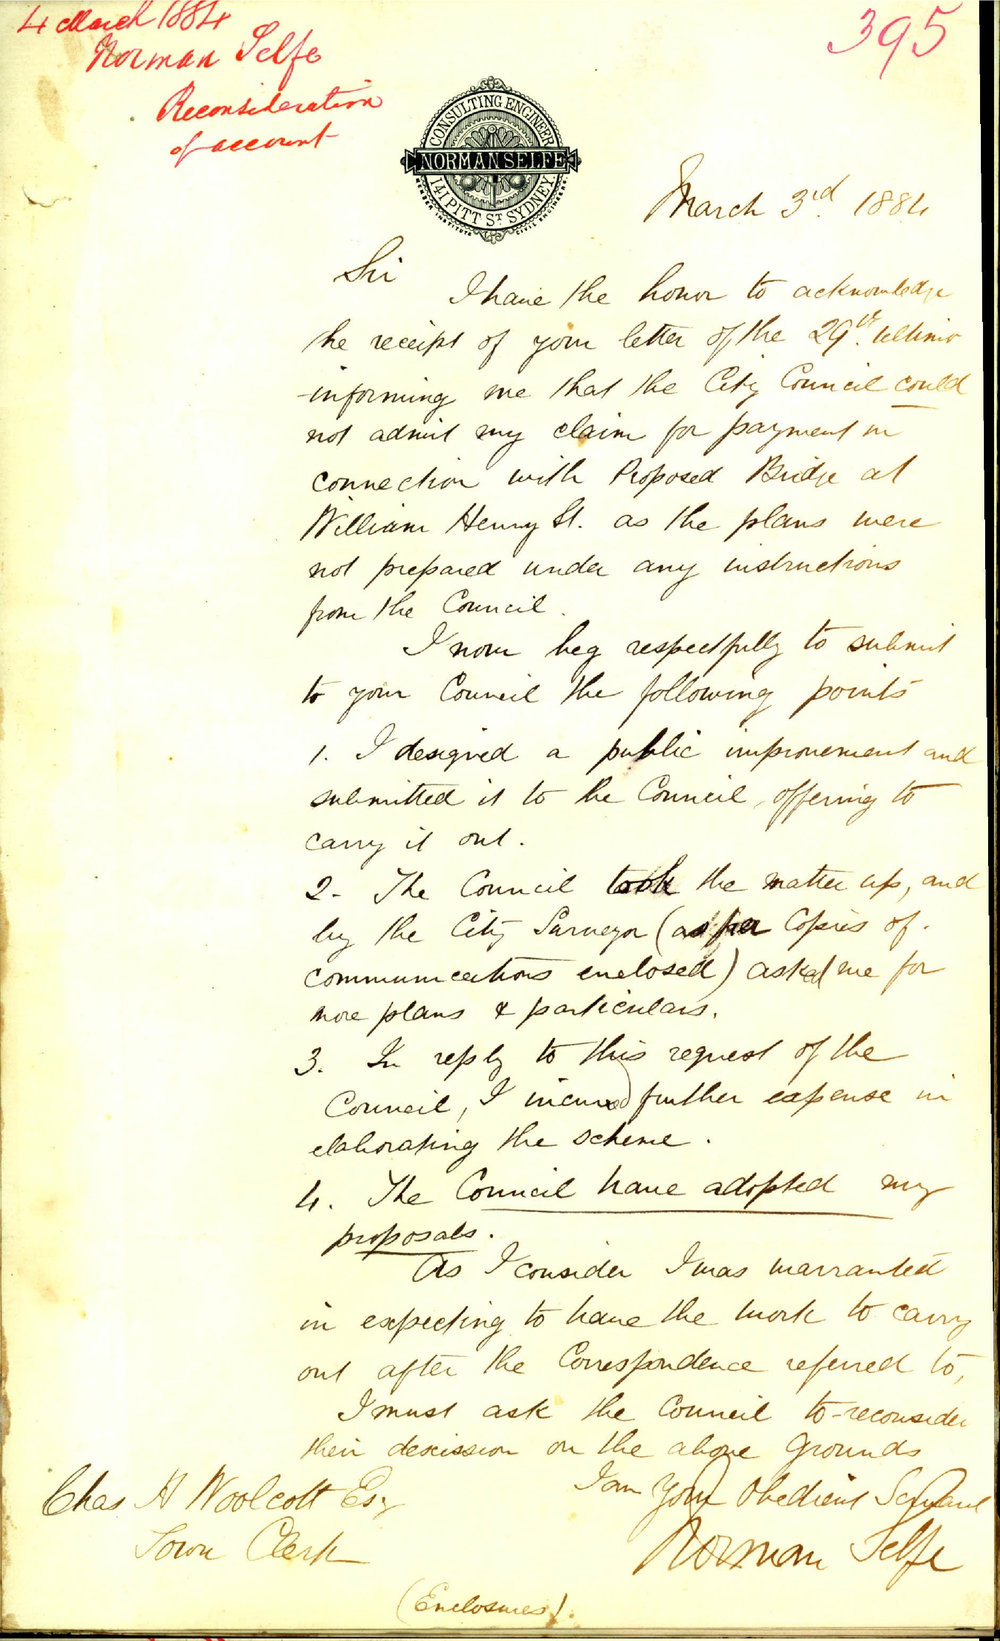 4 March 1884
Norman Selfe
Reconsideration
of account
395
CONSULTING ENGINEER
NORMAN SELFE
141 PITT ST SYDNEY
March 3rd 1884
Sir
I have the honor to acknowledge
the receipt of your letter of the 29th. ultimo
informing me that the City Council could
not admit my claim for payment in
connection with Proposed Bridge at
William Henry St. as the plans were
not prepared under any instructions
from the Council.
I now beg respectfully to submit
to your Council the following points
1. I designed a public improvement and
submitted it to the Council, offering to
carry it out.
2. The Council took the matter up, and
by the City Surveyor (as per Copies of
communications enclosed) asked me for
more plans & particulars.
3. In reply to this request of the
Council, I incurred further expense in
elaborating the scheme.
4. The Council have adopted my
proposals.
As I consider I was warranted
in expecting to have the work to carry
out after the Correspondence referred to,
I must ask the Council to reconsider
their descission on the above grounds
I am Your Obedient Servant
Norman Selfe
Chas H Woolcott Esq
Town Clerk
(Enclosures).